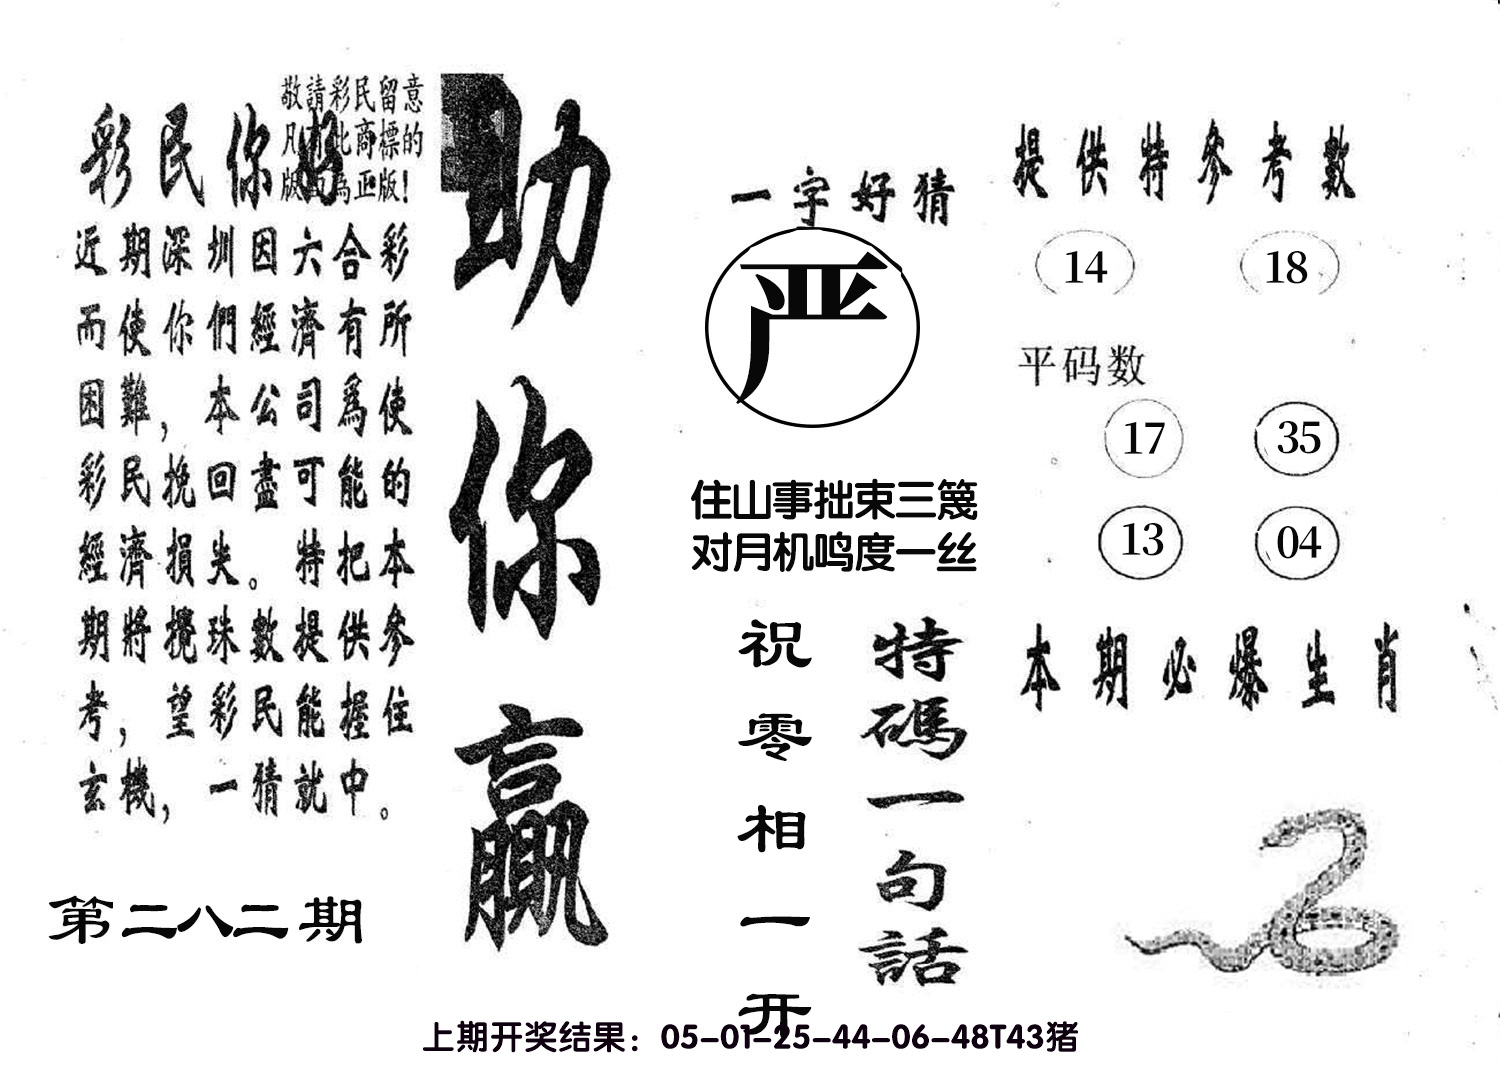 敬請彩民留意
凡有此商標的
版面為正版!
彩民你好
近期深圳因六合彩
而使你們經濟有所
困難，本公司爲使
彩民挽回盡可能的
經濟損失。特把本
期將攪珠數提供參
考，望彩民能握住
玄機，一猜就中。
第二八二期
助你赢
一字好猜
严
住山事拙束三篾
对月机鸣度一丝
特碼一句話
祝零相一开
提供特參考數
14 18
平码数
17 35
13 04
本期必爆生肖
上期开奖结果：05-01-25-44-06-48T43猪